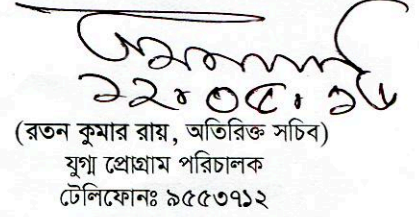 ১২.০৫.১৫
(রতন কুমার রায়, অতিরিক্ত সচিব)
যুগ্ম প্রোগ্রাম পরিচালক
টেলিফোনঃ ৯৫৫৩৭১২